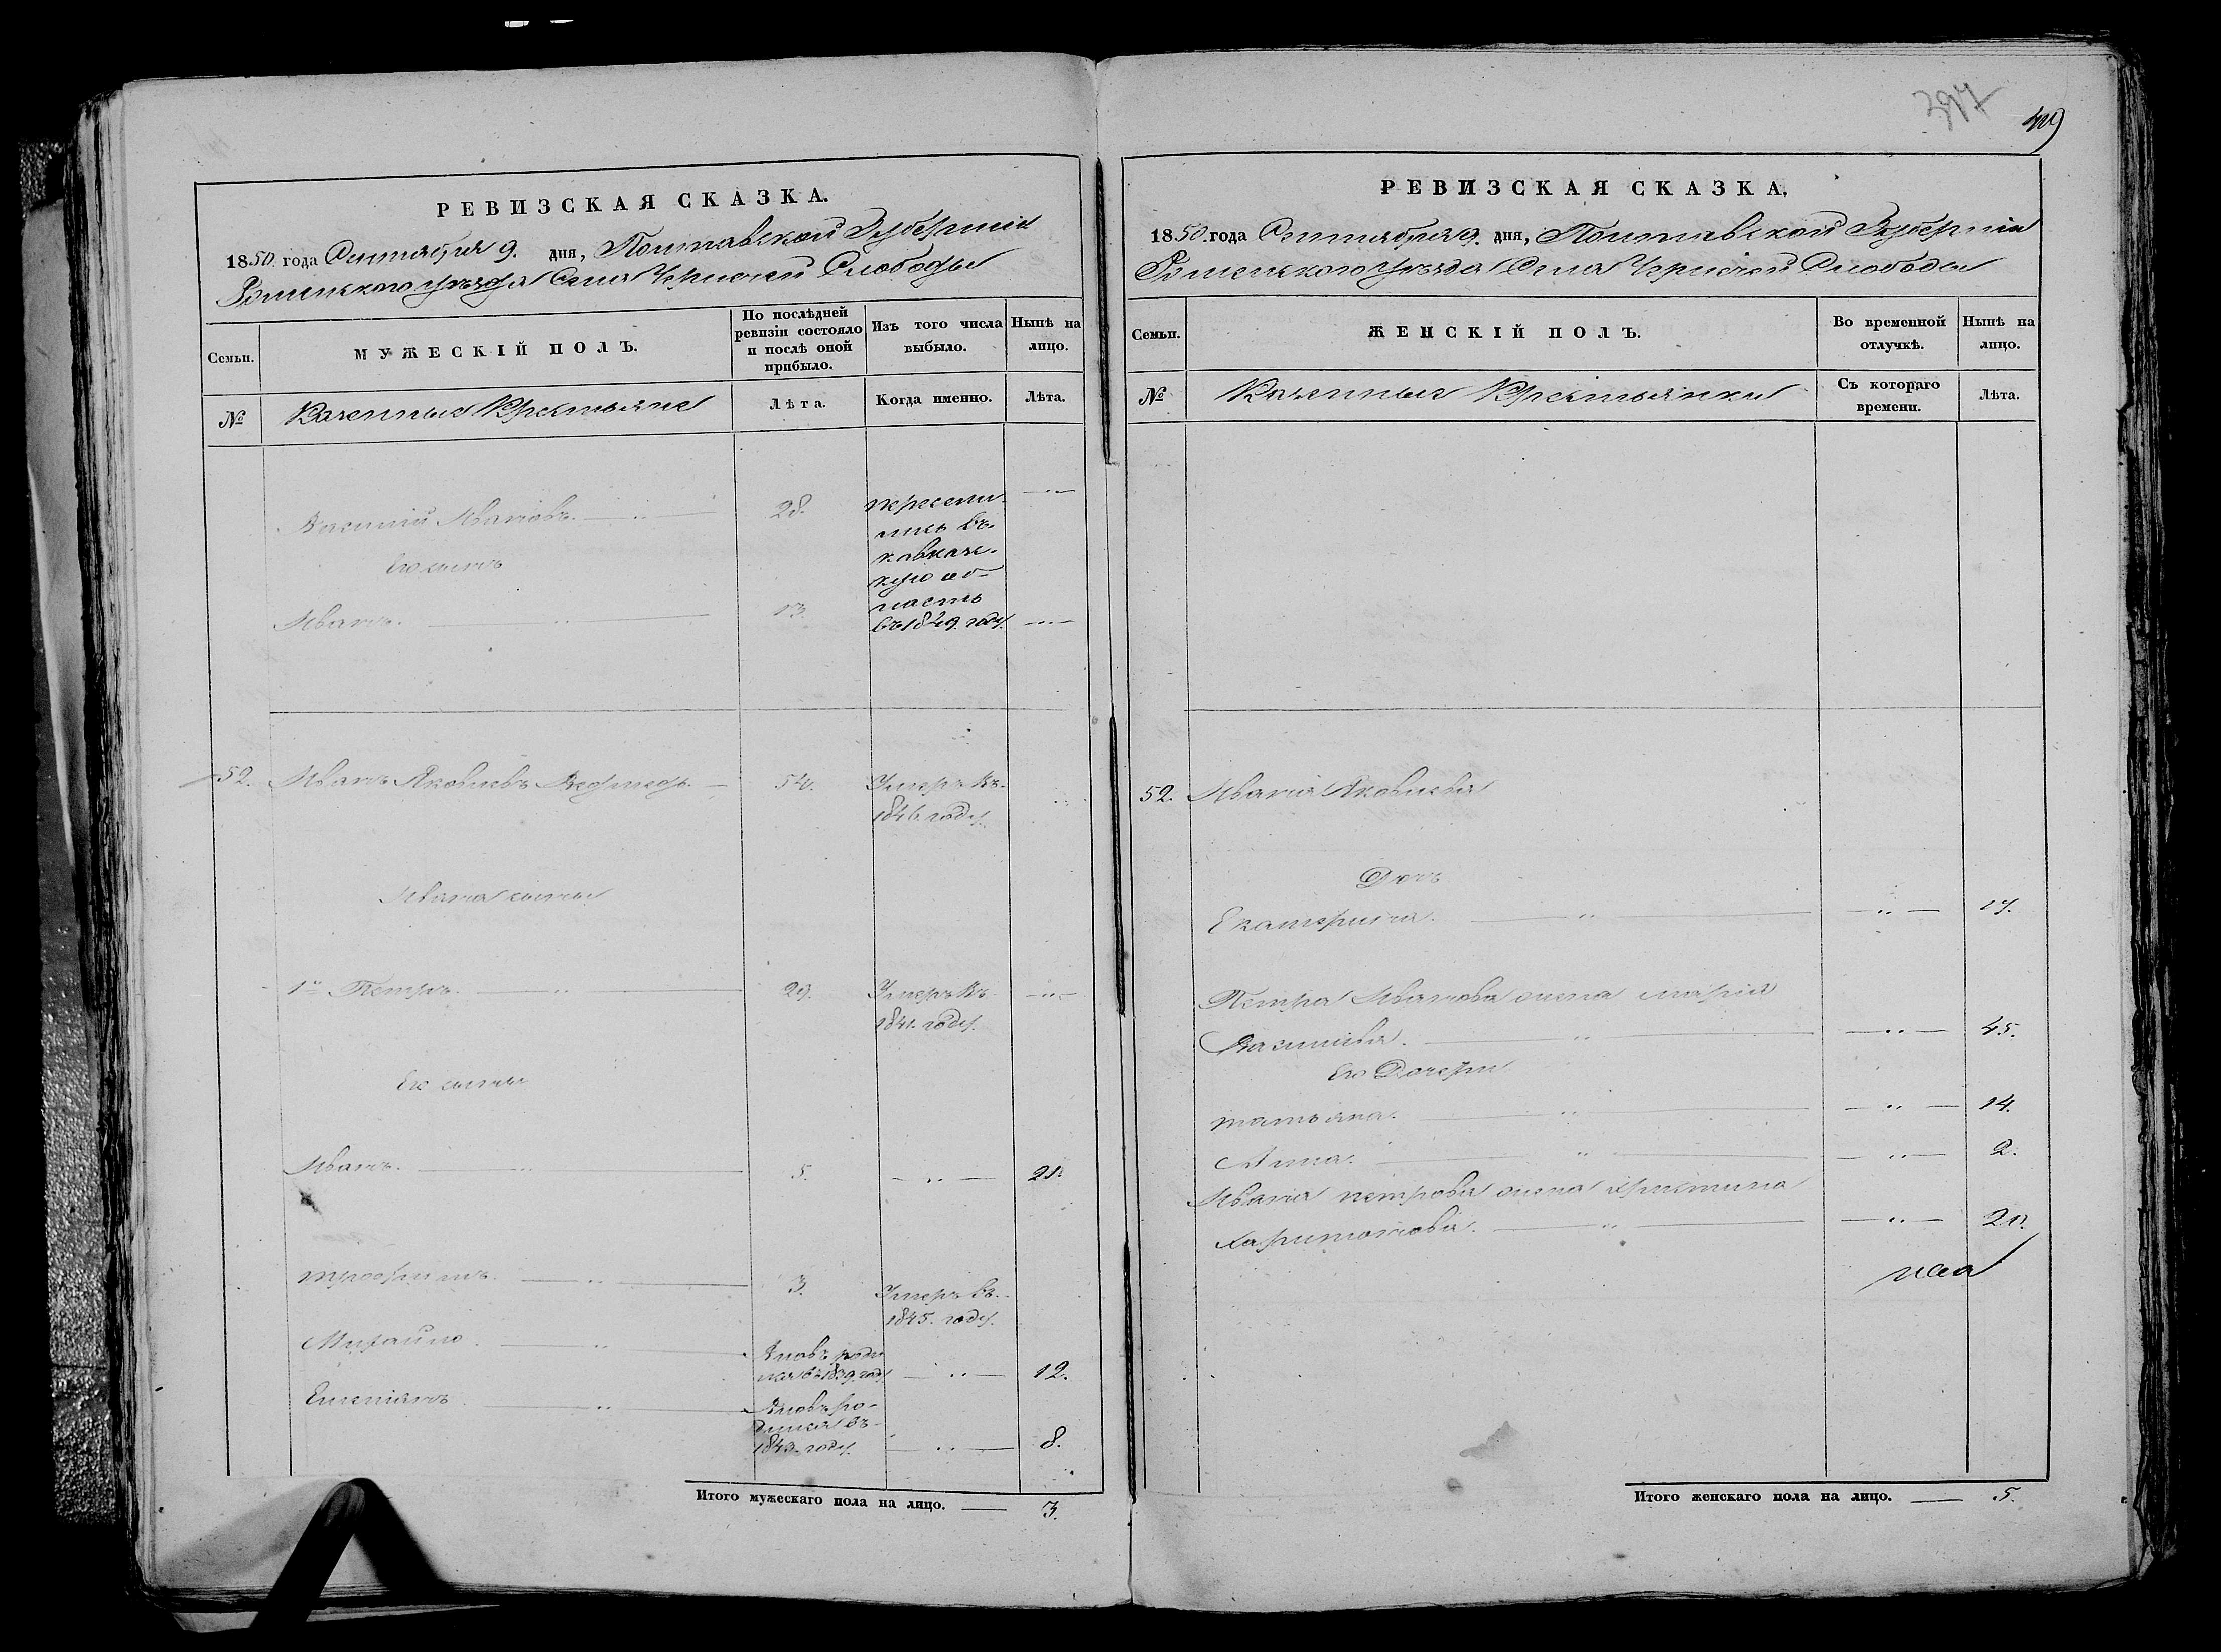 397
РЕВИЗСКАЯ СКАЗКА.
1850. года Сентября 9. дня, Полтавской Губерніи
Роменского уѣзда Села Чернечей Слободы
Семьи.
МУЖЕСКІЙ ПОЛЪ.
По послѣдней
ревизіи состояло
и послѣ оной
прибыло.
Изъ того числа
выбыло.
Нынѣ на
лицо.
№
Казенные Крестьяне
Лѣта.
Когда именно.
Лѣта.
Василій Ивановъ. — „ — 28. пересели- — „ —
лись въ
Его сынъ кавказс-
кую об-
Иванъ. — „ — 13. ласть
въ 1849. году. — „ —
52. Иванъ Яковлевъ Ведмедь. — 54. Умеръ въ
1846. году.
Ивана сыны
1й Петръ. — „ — 29. Умеръ въ — „ —
1841. году.
Его сыны
Иванъ. — „ — 5. — „ — 21.
трофимъ. — „ — 3. Умеръ въ
1845. году.
Михайло. — „ — Вновь роди
лся въ 1839. году — „ — 12.
Емеліянъ — „ — Вновь ро-
дился въ
году. — „ — 8.
Итого мужескаго пола на лицо. — 3.
РЕВИЗСКАЯ СКАЗКА.
1850. года Сентября 9. дня, Полтавской Губерніи
Роменского уѣзда Села Чернечей Слободы
Семьи.
ЖЕНСКІЙ ПОЛЪ.
Во временной
отлучкѣ.
Нынѣ на
лицо.
№
Казенные Крестьянки
Съ котораго
времени.
Лѣта.
52. Ивана Яковлева
Дочь
Екатерина. — „ — — „ — 17.
Петра Иванова жена марія
Василіева. — „ — — „ — 45.
Его Дочери
татьяна. — „ — — „ — 14.
Анна. — „ — — „ — 2.
Ивана петрова жена христина
Харитонова. — „ — — „ — 21.
Итого женскаго пола на лицо. — 5.